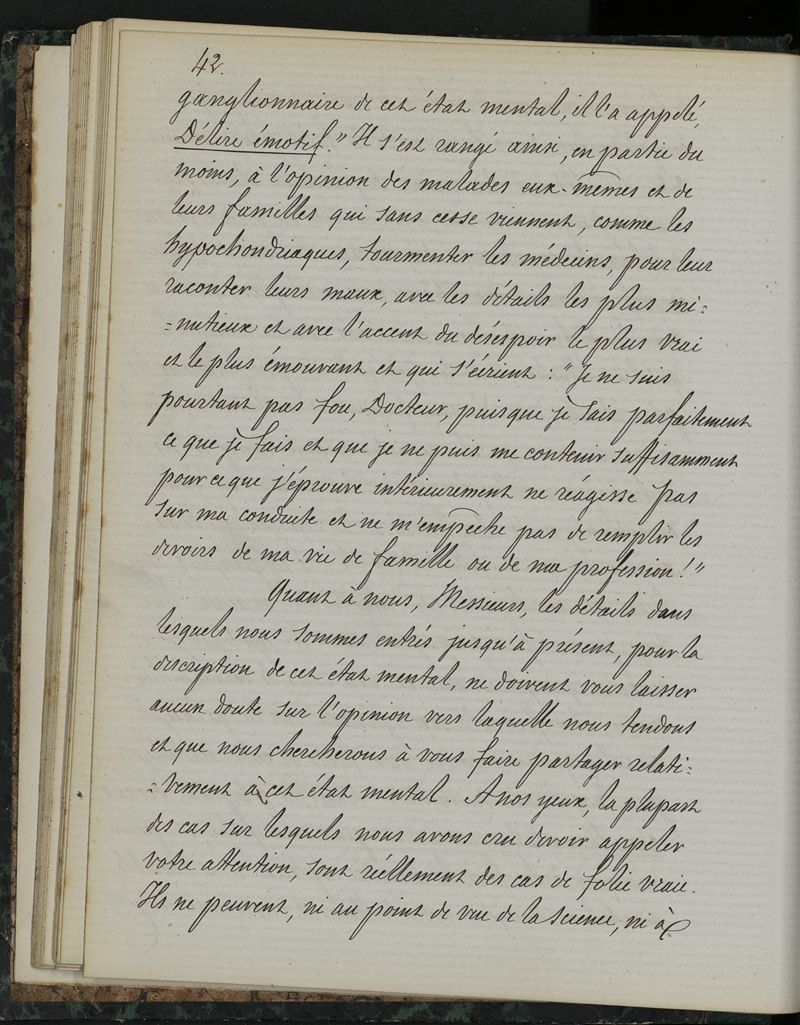 42.
ganglionnaire de cet état mental, il l'a appelé,
Délire émotif." Il s'est rangé ainsi, en partie du
moins, à l'opinion des malades eux-mêmes et de
leurs familles qui sans cesse viennent, comme les
hypochondriaques, tourmenter les médecins, pour leur
raconter leurs maux, avec les détails les plus mi=
=nutieux et avec l'accent du désespoir le plus vrai
et le plus émouvant et qui s'écrient : "Je ne suis
pourtant pas fou, Docteur, puisque je sais parfaitement
ce que je fais et que je ne puis me contenir suffisamment
pour ce que j'éprouve intérieurement ne réagisse pas
sur ma conduite et ne m'empêche pas de remplir les
devoirs de ma vie de famille ou de ma profession !"
Quant à nous, Messieurs, les détails dans
lesquels nous sommes entrés jusqu'à présent, pour la
description de cet état mental, ne doivent vous laisser
aucun doute sur l'opinion vers laquelle nous tendons
et que nous chercherons à vous faire partager relati=
=vement à cet état mental. A nos yeux, la plupart
des cas sur lesquels nous avons cru devoir appeler
votre attention, sont réellement des cas de folie vraie.
Ils ne peuvent, ni au point de vue de la science, ni à